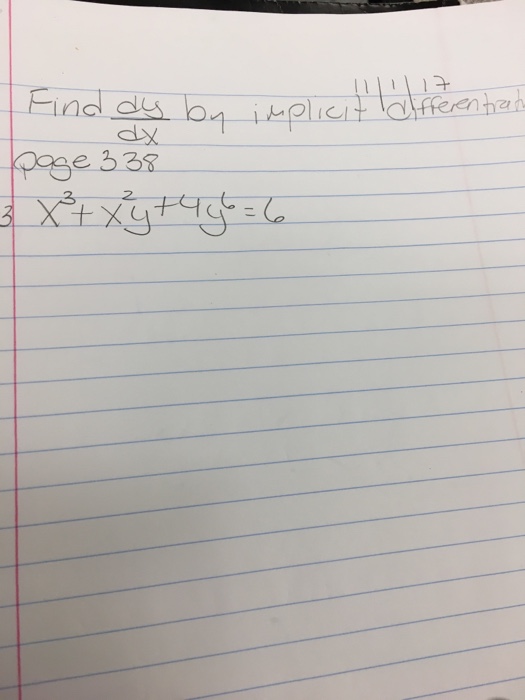 11/1/17
Find dy/dx by implicit differentiat
page 338
3 x³ + x²y + 4y⁶ = 6